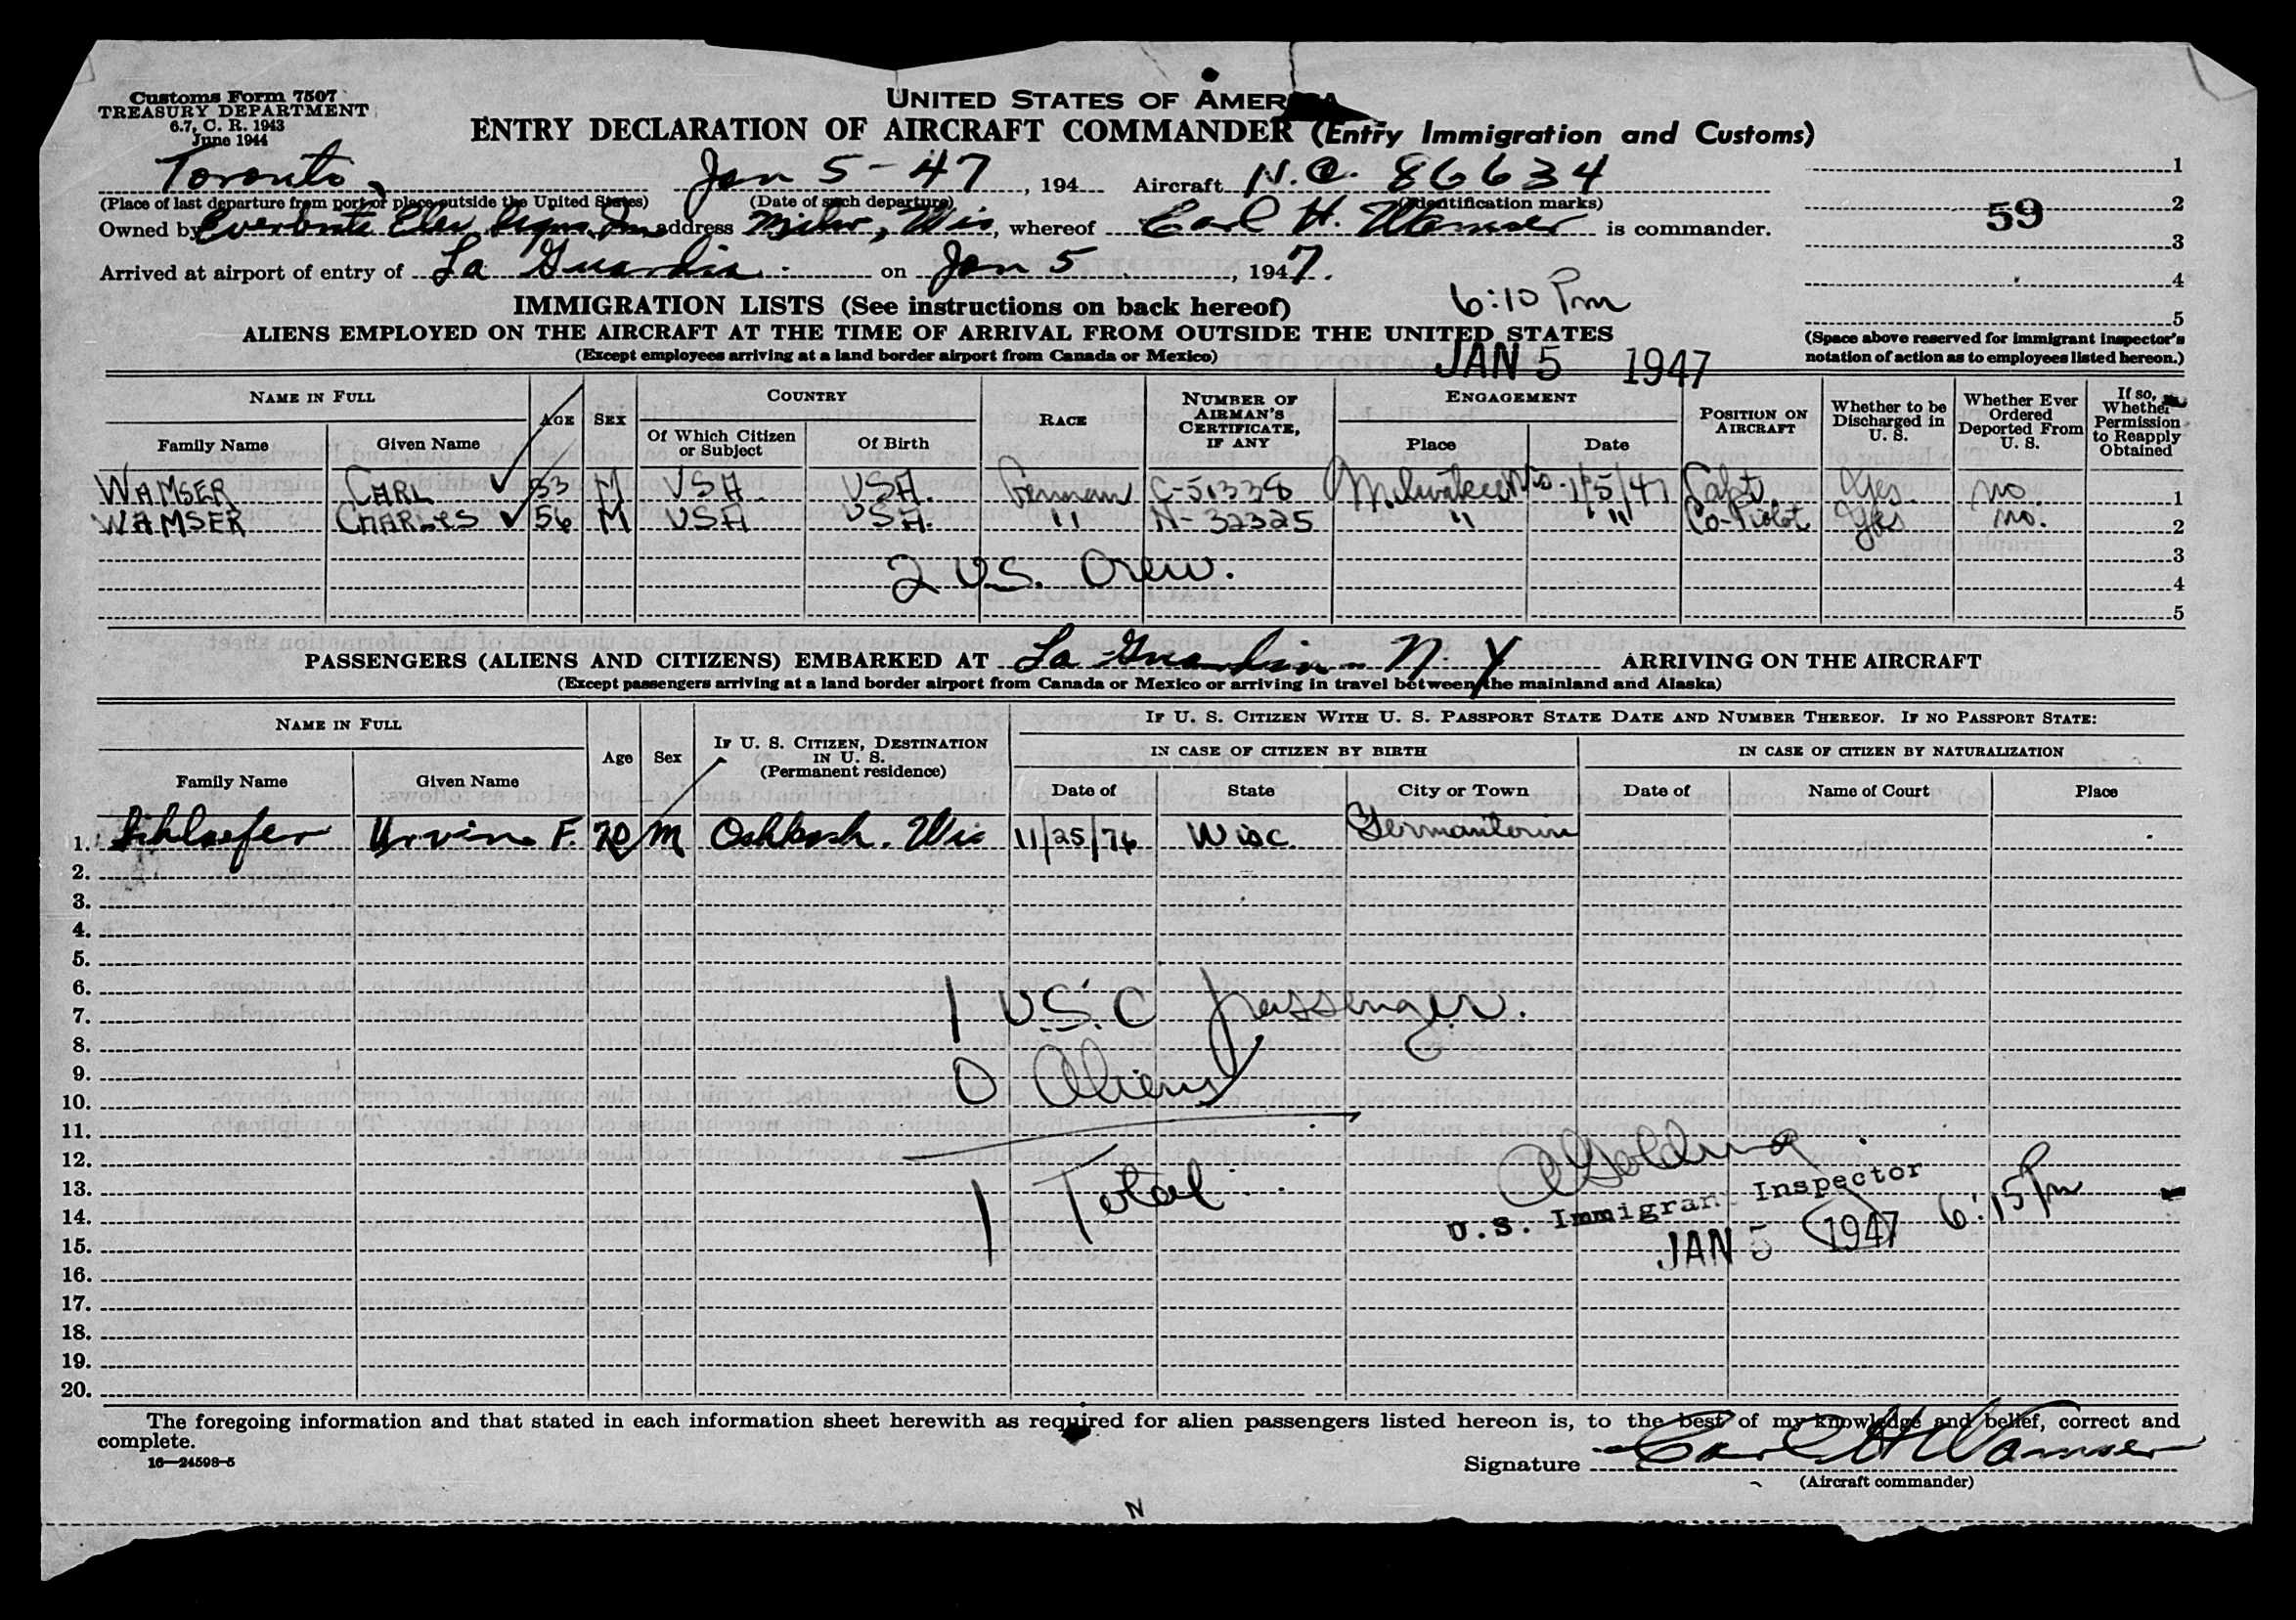 Customs Form 7507
TREASURY DEPARTMENT
6.7, C. R. 1943
June 1944
UNITED STATES OF AMERICA
ENTRY DECLARATION OF AIRCRAFT COMMANDER (Entry Immigration and Customs)
Toronto, Jan 5-47, 194 Aircraft N.C. 86634 1
(Place of last departure from port or place outside the United States) (Date of such departure) (Identification marks)
59 2
Owned by Everbrite Elec Signs Inc address Milw, Wis, whereof Earl H. Wamser is commander.
3
Arrived at airport of entry of La Guardia on Jan 5, 1947.
4
6:10 Pm
IMMIGRATION LISTS (See instructions on back hereof)
5
ALIENS EMPLOYED ON THE AIRCRAFT AT THE TIME OF ARRIVAL FROM OUTSIDE THE UNITED STATES
(Space above reserved for immigrant inspector's notation of action as to employees listed hereon.)
(Except employees arriving at a land border airport from Canada or Mexico)
JAN 5 1947
NAME IN FULL AGE SEX COUNTRY RACE NUMBER OF AIRMAN'S CERTIFICATE, IF ANY ENGAGEMENT POSITION ON AIRCRAFT Whether to be Discharged in U. S. Whether Ever Ordered Deported From U. S. If so, Whether Permission to Reapply Obtained
Family Name Given Name Of Which Citizen or Subject Of Birth Place Date
WAMSER CARL 33 M USA USA. German C-51338 Milwaukee Wis. 1/5/47 Capt Yes no 1
WAMSER CHARLES 56 M USA USA. " N-32325 " " Co-Pilot yes no. 2
2 U.S. Crew.
3
4
5
PASSENGERS (ALIENS AND CITIZENS) EMBARKED AT La Guardia - N. Y ARRIVING ON THE AIRCRAFT
(Except passengers arriving at a land border airport from Canada or Mexico or arriving in travel between the mainland and Alaska)
NAME IN FULL Age Sex IF U. S. CITIZEN, DESTINATION IN U. S. (Permanent residence) IF U. S. CITIZEN WITH U. S. PASSPORT STATE DATE AND NUMBER THEREOF. IF NO PASSPORT STATE:
IN CASE OF CITIZEN BY BIRTH IN CASE OF CITIZEN BY NATURALIZATION
Family Name Given Name Date of State City or Town Date of Name of Court Place
1. Schlaefer F. 70 M Oshkosh. Wis 11/25/76 Wisc. Germantown
2.
3.
4.
5.
6.
7. 1 U.S.C passenger.
8.
9. 0 Aliens
10.
11.
12.
13. 1 Total
U.S. Immigrant Inspector
14. 6:15 Pm
15. JAN 5 1947
16.
17.
18.
19.
20.
The foregoing information and that stated in each information sheet herewith as required for alien passengers listed hereon is, to the best of my knowledge and belief, correct and
complete.
16—24598-5
Signature Earl H Wamser
(Aircraft commander)
N